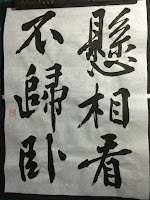 懸相看
不歸臥